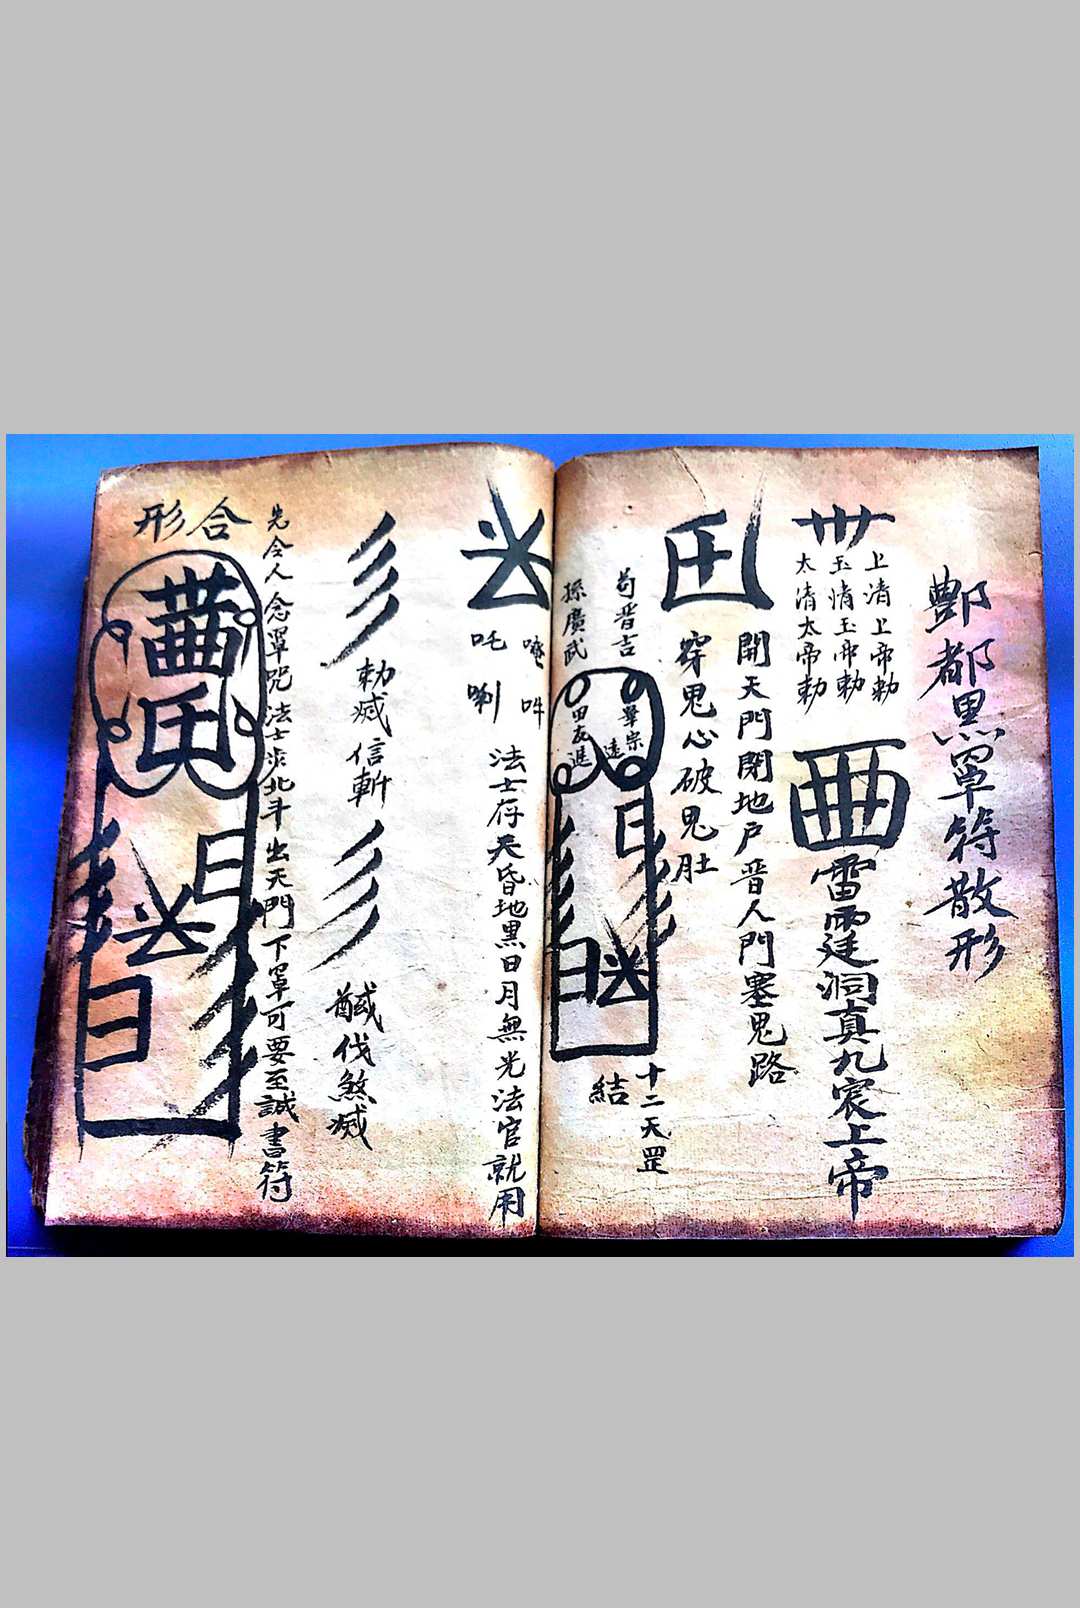 酆都黑罩符散形
上清上帝勅
玉清玉帝勅
太清太帝勅
雷霆洞真九宸上帝
開天門閉地戶晋人門塞鬼路
穿鬼心破鬼肚
苟晋吉
孫廣武
畢宗遠
田友進
十二天罡
結
吽
吒
唎
法士存天昏地黑日月無光法官就用
勅滅信斬
馘伐煞滅
先令人念罩咒法士步北斗出天門下罩可要至誠書符
合形